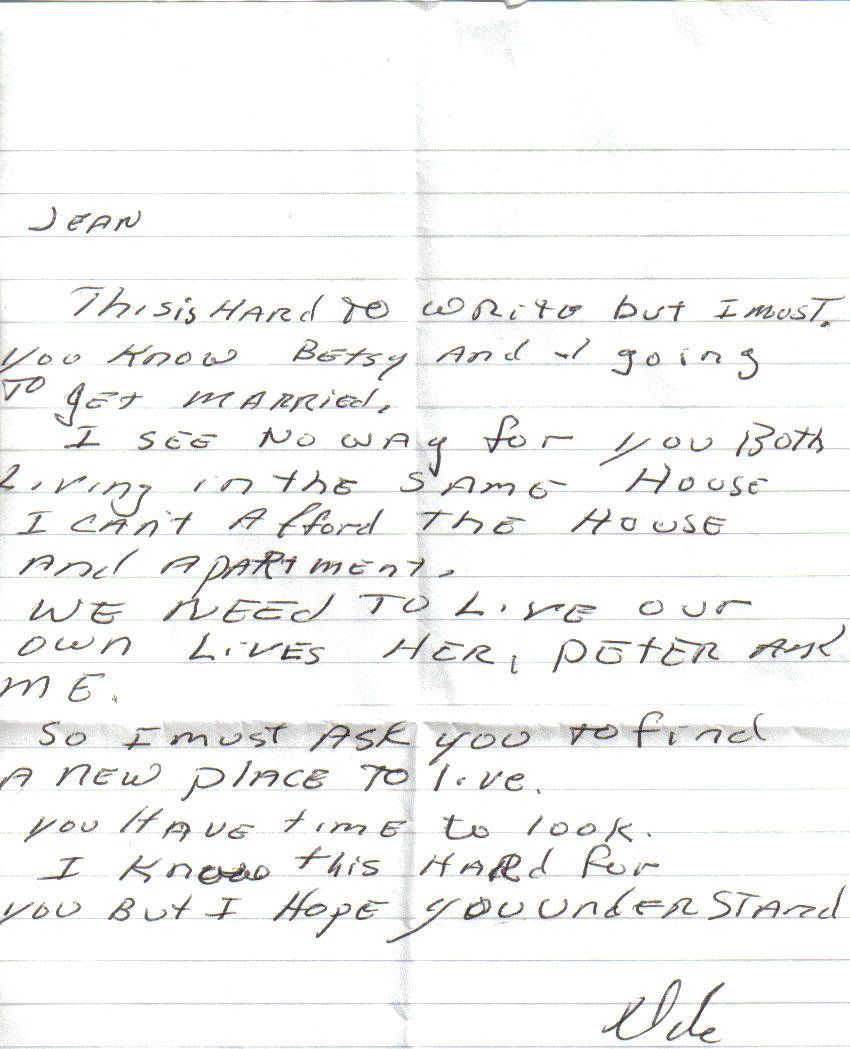 JEAN
This is HARd TO WRitE but I must.
you Know Betsy And I going
TO gEt mARRiEd.
I SEE NO WAy for you Both
Living in thE SAmE HousE
I CAn't Afford thE HousE
And ApARtmEnt.
WE NEEd TO LivE our
own LivES HER, PETER And
mE.
So I must ASK you to find
A nEW plACE TO live.
you HAVE timE to look.
I Know this HARd for
you But I HopE you undERSTAnd